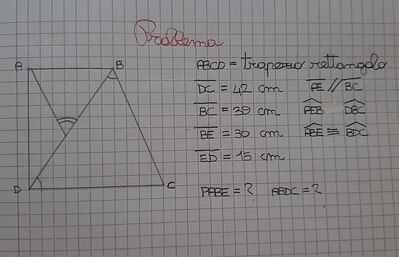 Problema
A B
D C
ABCD = trapezio rettangolo
DC = 42 cm AE // BC
BC = 39 cm AEB DBC
BE = 30 cm ABE ≅ BDC
ED = 15 cm
PABE = ? ABDC = ?